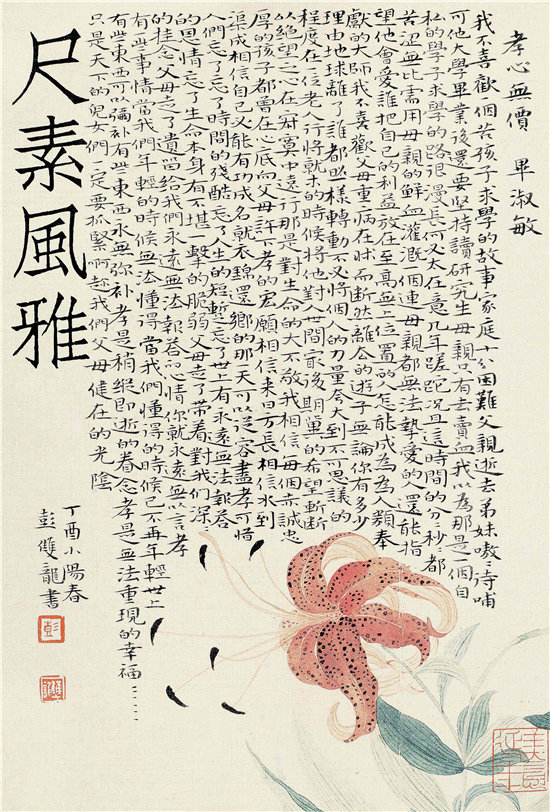 孝心無價 畢淑敏
我不喜歡一個苦孩子求學的故事家庭十分困難父親逝去弟妹嗷嗷待哺
可他大學畢業後還要堅持讀研究生母親只有去賣血我以為那是一個自
私的學子求學的路很漫長何又太在意几年蹉跎況且這時間的分分秒秒都
苦澀無比需用母親的鮮血灌溉一個連母親都無法摯愛的人還能指
望他會愛誰把自己的利益放在至高無上位置的人怎能成為為人類奉
獻的大師我不喜歡父母重病在牀而斷然離去的遊子無論你有多少
理由地球離了誰都照樣轉動不必將個人的力量夸大到不可思議的
程度在一位老人行將就木的時候將他對人世間最後期冀的希望斬斷
以絕望之心在寂寞中遠行那是對生命的大不敬我相信每個赤誠忠
厚的孩子都曾在心底向父母許下孝的宏願相信来日方長相信水到
渠成相信自己必能有功成名就衣錦還鄉的那一天可以從容盡孝可惜
人們忘了忘了時間的殘酷忘了人生的短暫忘了世上有永遠無法報答
的恩情忘了生命本身有不堪一擊的脆弱父母走了帶着對我們深深
的挂念父母走了遺留給我們永遠無法報答的心情你就永遠無以言孝
有一些事情當我們年輕的時候無法懂得當我們懂得的時候已不再年輕世上
有些東西可以彌補有些東西永無弥補孝是稍縱即逝的眷念孝是無法重現的幸福……
只是天下的兒女們一定要抓緊啊趁我們父母健在的光陰
丁酉小陽春
彭雙龍書
彭
尺素風雅